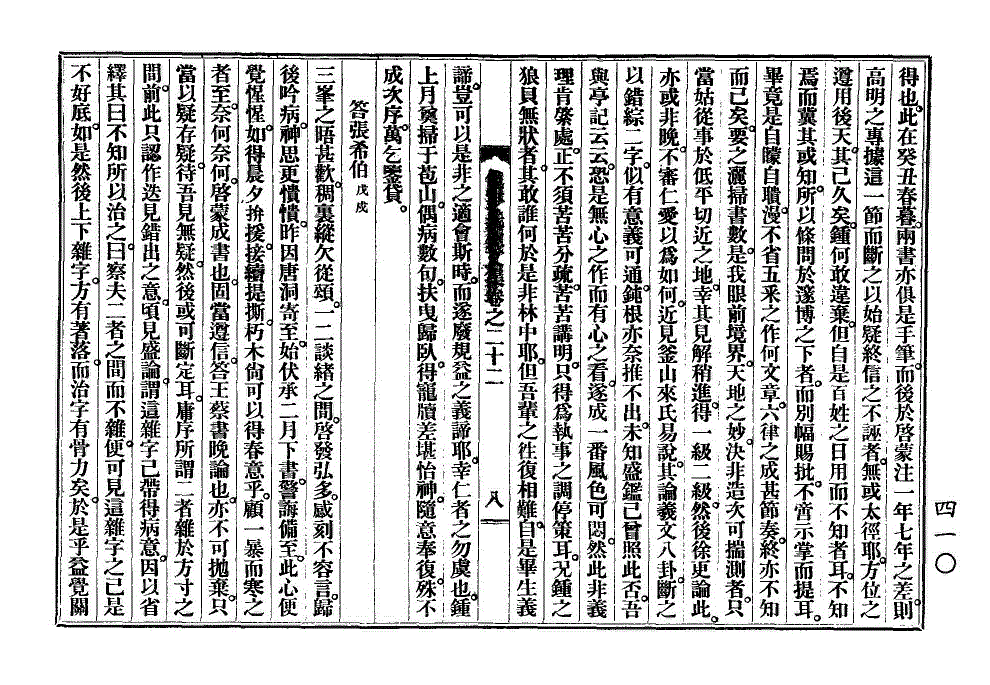 得也此在癸丑春暮兩書亦俱是手筆而後於啓蒙注一年七年之差則
高明之專據這一節而斷之以始疑終信之不誣者無或太徑耶方位之
遵用後天其已久矣鍾何敢違棄但自是百姓之日用而不知者耳不知
焉而冀其或知所以條問於邃博之下者而別幅賜批不啻示掌而提耳
畢竟是自矇自聵漫不省五釆之作何文章六律之成甚節奏終亦不知
而已矣要之灑掃書數是我眼前境界天地之妙決非造次可揣測者只
當姑從事於低平切近之地幸其見解稍進得一級二級然後徐更論此
亦或非晩不審仁愛以爲如何近見釜山來氏易說其論羲文八卦斷之
以錯綜二字似有意義可通鈍根亦奈推不出未知盛鑑已曾照此否吾
與亭記云云恐是無心之作而有心之看遂成一番風色可悶然此非義
理肯綮處正不須苦苦分疏苦苦講明只得爲執事之調停策耳况鍾之
狼貝無狀者其敢誰何於是非林中耶但吾輩之往復相難自是畢生義
卷之二十二
八
諦豈可以是非之適會斯時而遂廢規益之義諦耶幸仁者之勿虞也鍾
上月奠掃于苞山偶病數旬扶曳歸臥得寵牘差堪怡神隨意奉復殊不
成次序萬乞鑒貸
答張希伯戊戌
三峯之晤甚歡稠裏縱欠從頌一二談緖之間啓發弘多感刻不容言歸
後吟病神思更憒憒昨因唐洞寄至始伏承二月下書警誨備至此心便
覺惺惺如得晨夕拚援接續提撕朽木尙可以得春意乎顧一暴而寒之
者至奈何奈何啓蒙成書也固當遵信答王蔡書晩論也亦不可抛棄只
當以疑存疑待吾見無疑然後或可斷定耳庸序所謂二者雜於方寸之
間前此只認作迭見錯出之意頃見盛論謂這雜字已帶得病意因以省
繹其曰不知所以治之曰察夫二者之間而不雜便可見這雜字之已是
不好底如是然後上下雜字方有著落而治字有骨力矣於是乎益覺關
四一〇